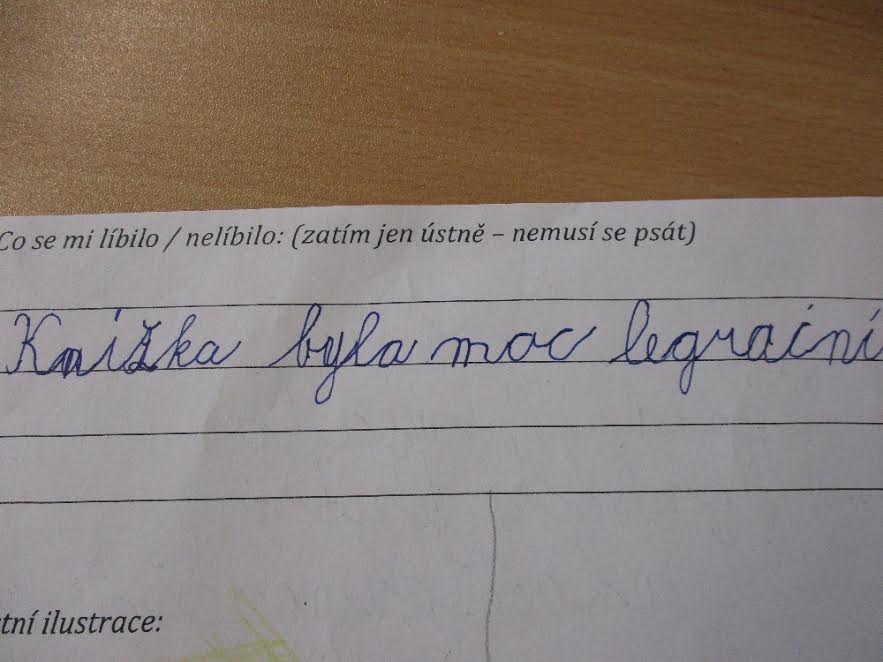 Co se mi líbilo / nelíbilo: (zatím jen ústně – nemusí se psát)
Knížka byla moc legrační
tní ilustrace: